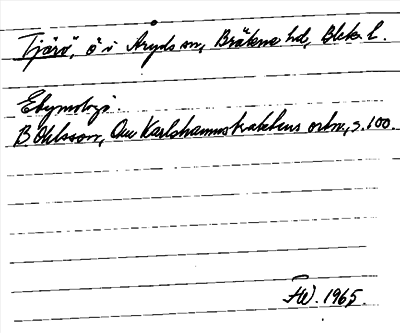 Tjärö, ö i Åryds sn, Bräkne hd, Blek. l.
Etymologi.
B Ohlsson, Om Karlshamnstraktens ortn., s. 100.
HW. 1965.